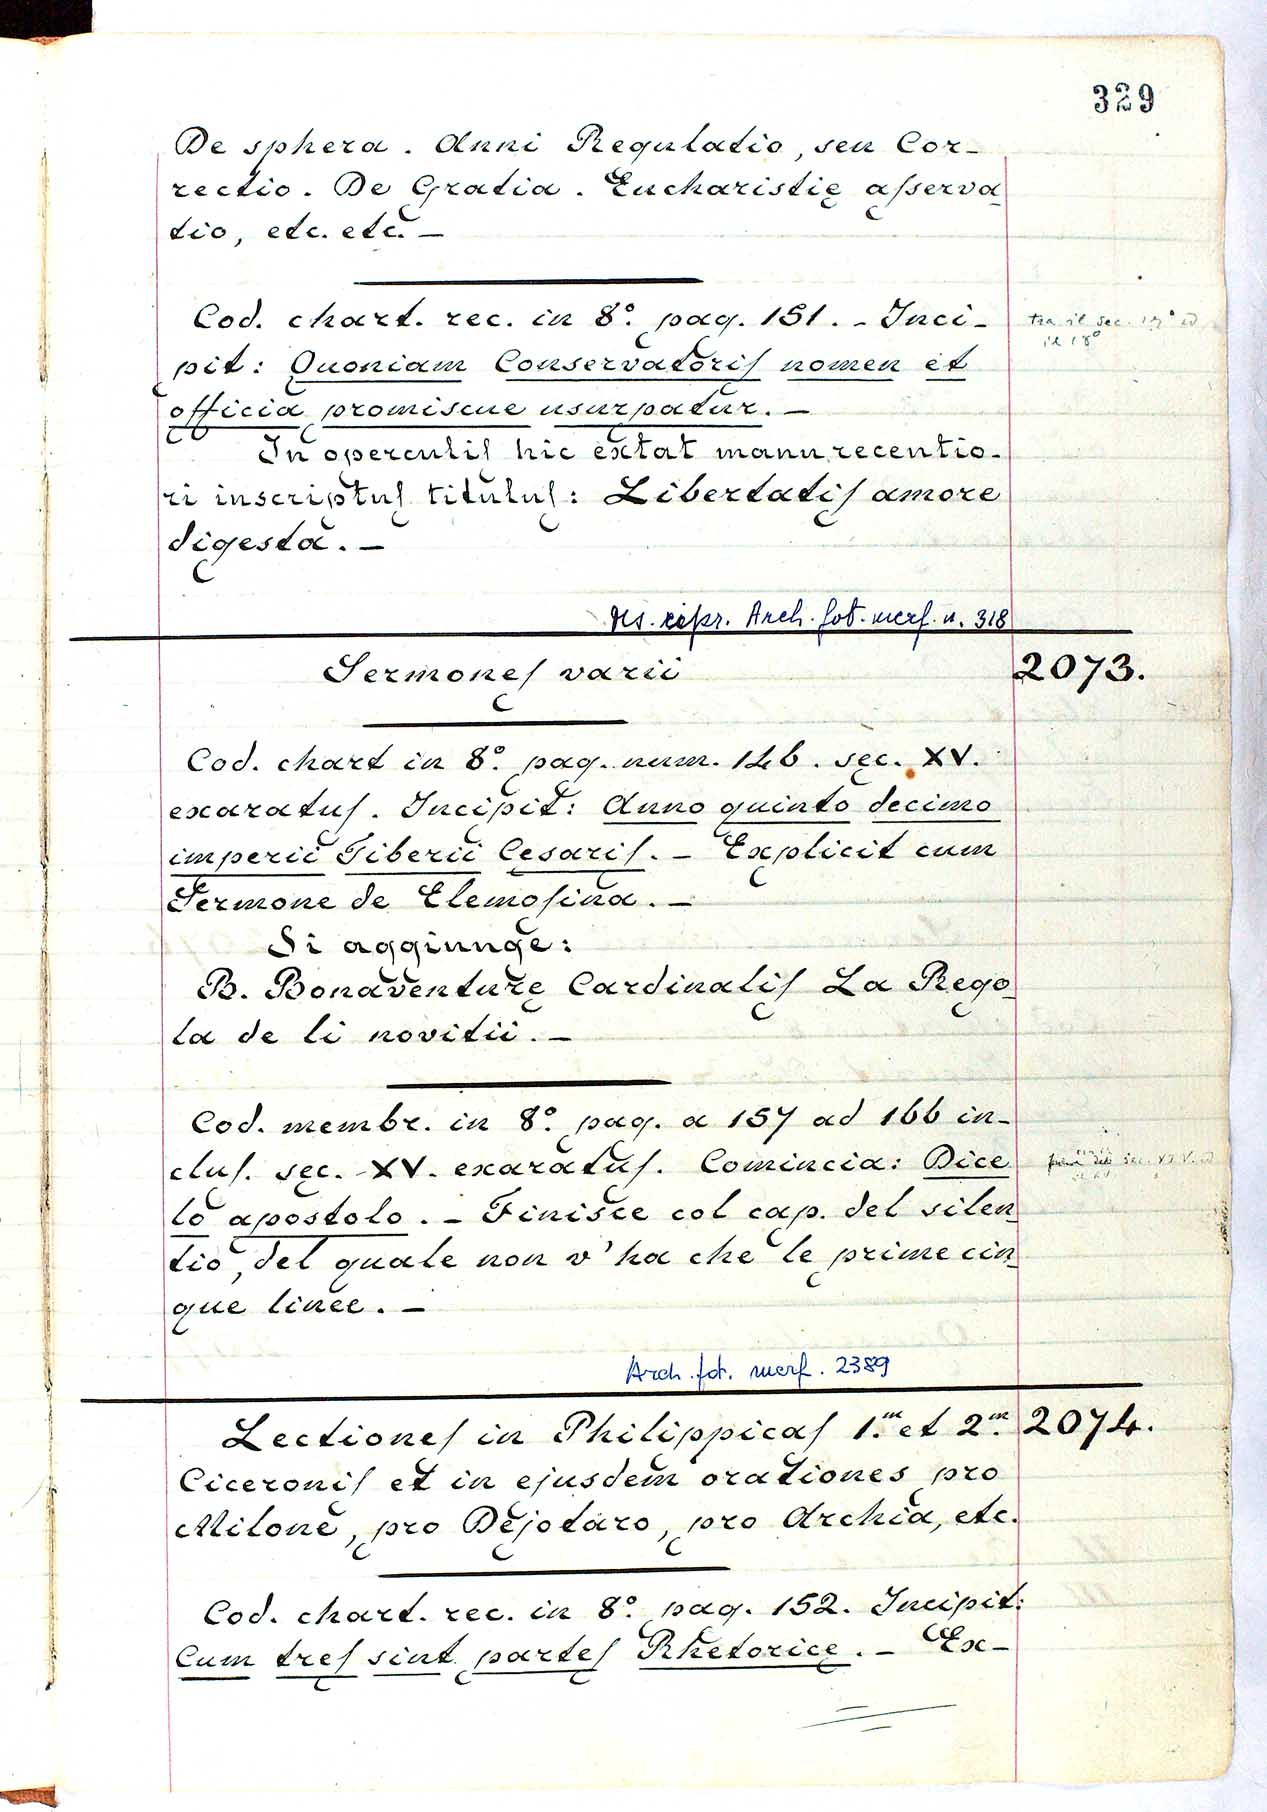 329
De sphera. Anni Regulatio, seu Cor-
rectio. De Gratia. Eucharistię asserva
tio, etc. etc. —
Cod. chart. rec. in 8.º pag. 151. - Inci-
tra il sec. 17º ed
il 18º
pit: Quoniam Conservatoris nomen et
officia promiscue usurpatur. —
In operculis hic extat manu recentio-
ri inscriptus titulus: Libertatis amore
digesta. —
Ms. ripr. Arch. fot. merf. n. 318
Sermones varii
2073.
Cod. chart in 8.º pag. num. 146. sec. XV.
exaratus. Incipit: Anno quinto decimo
imperii Tiberii Cesaris. — Explicit cum
Sermone de Elemosina. —
Si aggiunge:
B. Bonaventurę Cardinalis La Rego
la de li novitii. —
Cod. membr. in 8.º pag. a 157 ad 166 in-
clus. sec. XV. exaratus. Comincia: Dice
lo apostolo. — Finisce col cap. del silen
tio, del quale non v'ha che le prime cin
que linee. —
Arch. fot. merf. 2389
Lectiones in Philippicas 1.m et 2.m
2074.
Ciceronis et in ejusdem orationes pro
Milone, pro Dejotaro, pro Archia, etc.
Cod. chart. rec. in 8.º pag. 152. Incipit:
Cum tres sint partes Rhetoricę. — Ex-